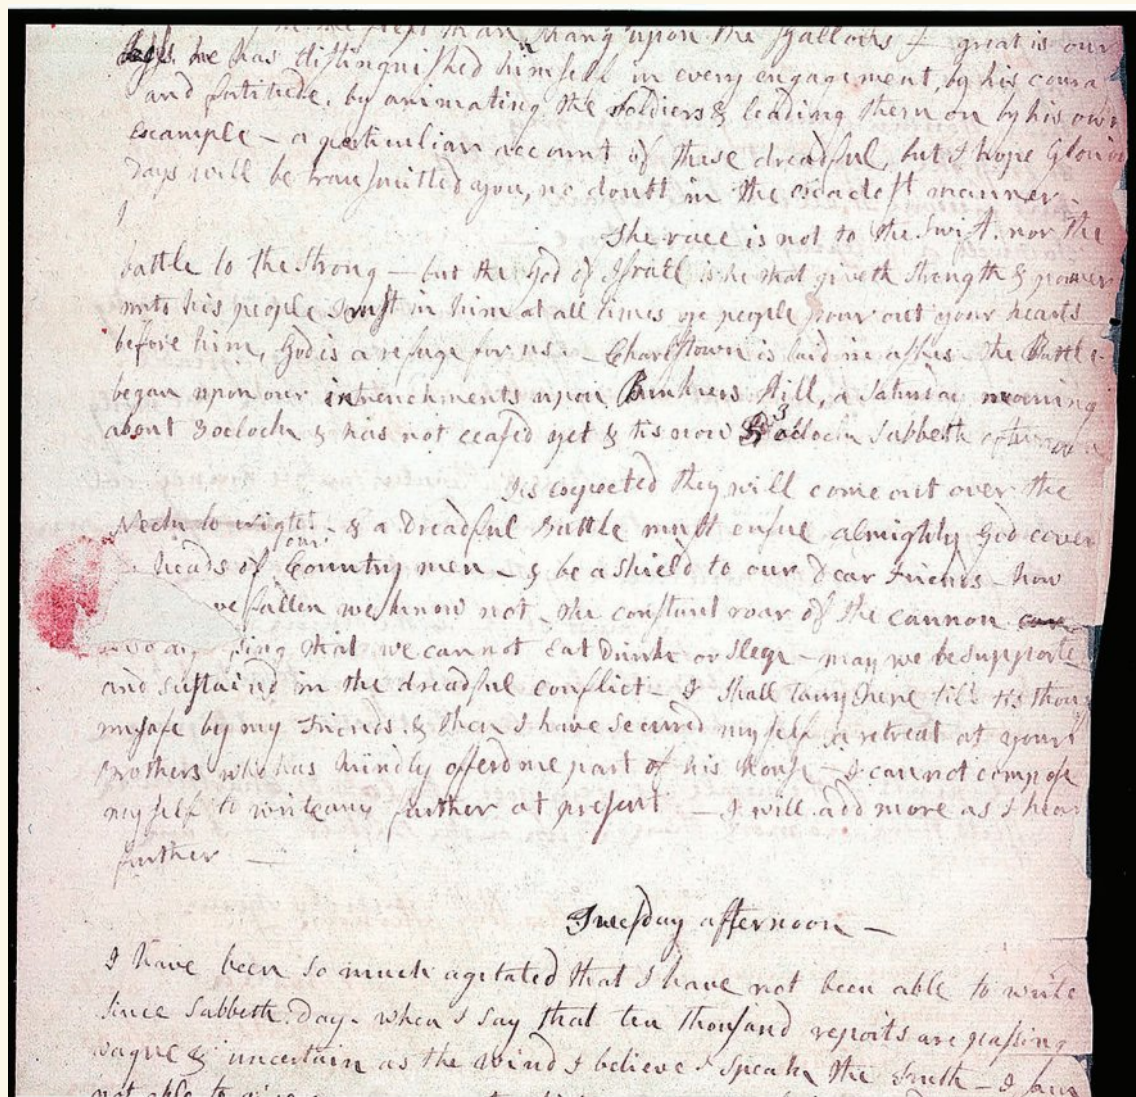 in the field than hang upon the Gallows — great is our
loss. he has distinguished himself in every engagement, by his coura
and fortitude, by animating the soldiers & leading them on by his own
example — a particuliar account of these dreadful, but I hope Glorious
Days will be transmitted you, no doubt in the exactest manner.
The race is not to the swift, nor the
battle to the strong — but the God of Israel is he that giveth strength & power
unto his people. Trust in him at all times ye people pour out your hearts
before him, God is a refuge for us — Charlstown is laid in ashes. the Battle
began upon our intrenchments upon Bunkers Hill, a Saturday morning
about 3 oclock & has not ceased yet & tis now 3 oclock Sabbeth afternoon
Tis expected they will come out over the
Neck to night & a Dreadful Battle must ensue almighty God cover
heads of our Country men — & be a shield to our Dear Friends — how
ve fallen we know not — the constant roar of the cannon
sing that we cannot Eat Drink or Sleep — may we be supporte
and sustaind in the dreadful conflict — I shall tarry here till tis thou
unsafe by my Friends, & then I have secured myself a retreat at your
Brothers who has kindly offerd me part of his House — I cannot compose
myself to write any further at present — I will add more as I hear
further —
Tuesday afternoon —
I have been so much agitated that I have not been able to write
since Sabbeth Day — when I say that ten thousand reports are passing
vague & uncertain as the wind I believe I speak the Truth — I am
not able to